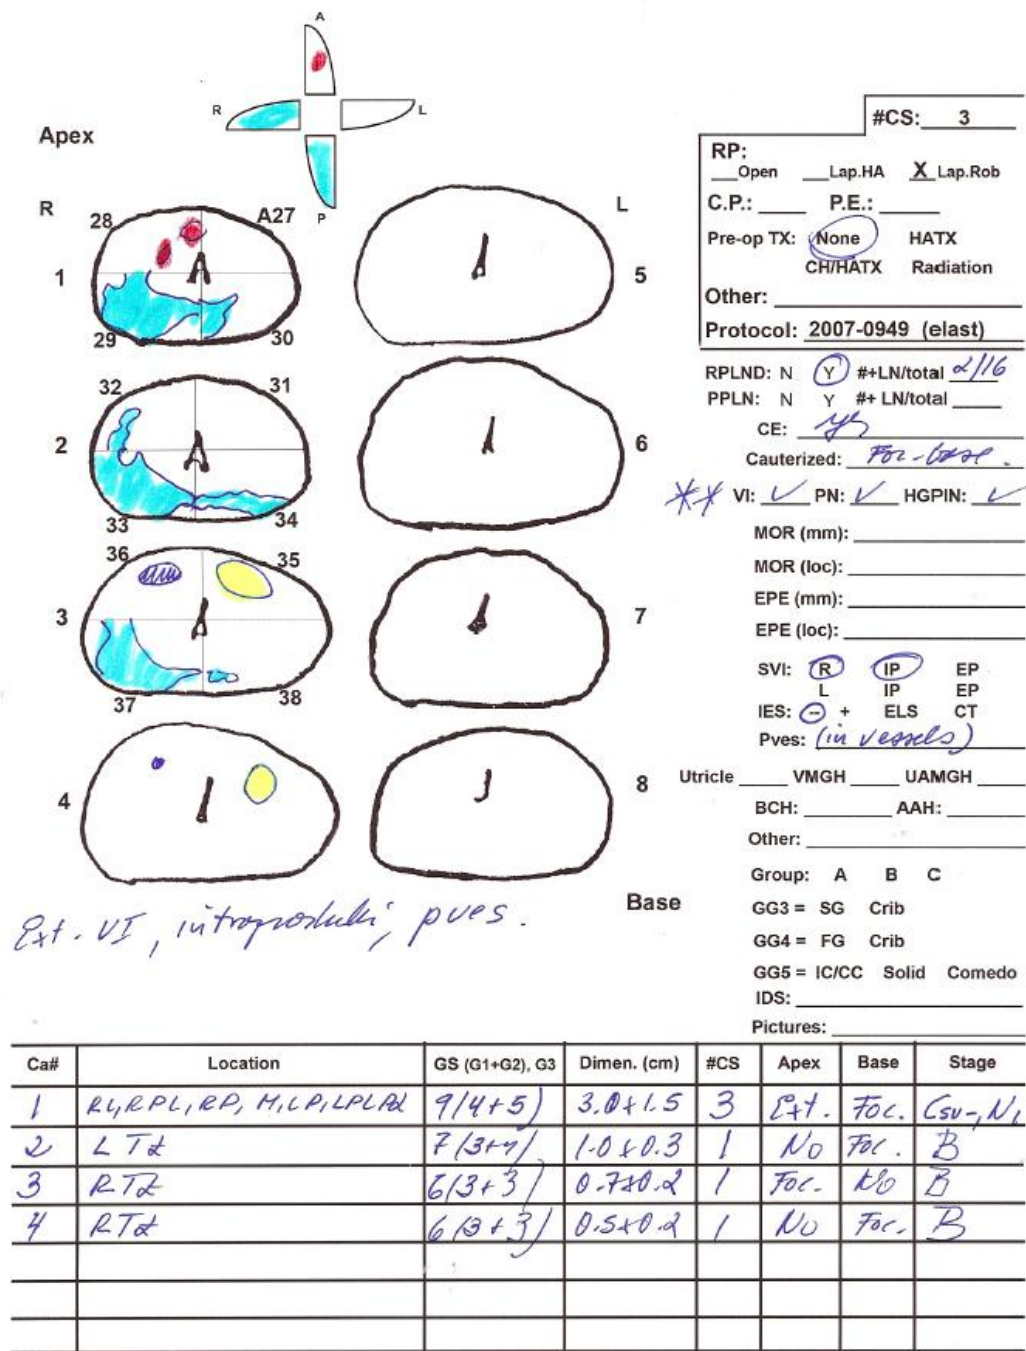 A
R L
P
Apex
R L
28 A27
1 5
29 30
32 31
2 6
33 34
36 35
3 7
37 38
4 8
Base
Ext. VI, pves.
#CS: 3
RP:
Open Lap.HA X Lap.Rob
C.P.: P.E.:
Pre-op TX: None HATX
CH/HATX Radiation
Other:
Protocol: 2007-0949 (elast)
RPLND: N Y #+LN/total 2/16
PPLN: N Y #+ LN/total
CE: yes
Cauterized: Foc-base.
** VI: ✓ PN: ✓ HGPIN: ✓
MOR (mm):
MOR (loc):
EPE (mm):
EPE (loc):
SVI: R IP EP
L IP EP
IES: -- + ELS CT
Pves: (in vessels)
Utricle VMGH UAMGH
BCH: AAH:
Other:
Group: A B C
GG3 = SG Crib
GG4 = FG Crib
GG5 = IC/CC Solid Comedo
IDS:
Pictures:
Ca# Location GS (G1+G2), G3 Dimen. (cm) #CS Apex Base Stage
1 RL, RPL, RP, M, LP, LPL 9(4+5) 3.0x1.5 3 Ext. Foc. Csv-, N1
2 L TZ 7(3+4) 1.0x0.3 1 No Foc. B
3 RTZ 6(3+3) 0.7x0.2 1 Foc. No B
4 RTZ 6(3+3) 0.5x0.2 1 No Foc. B